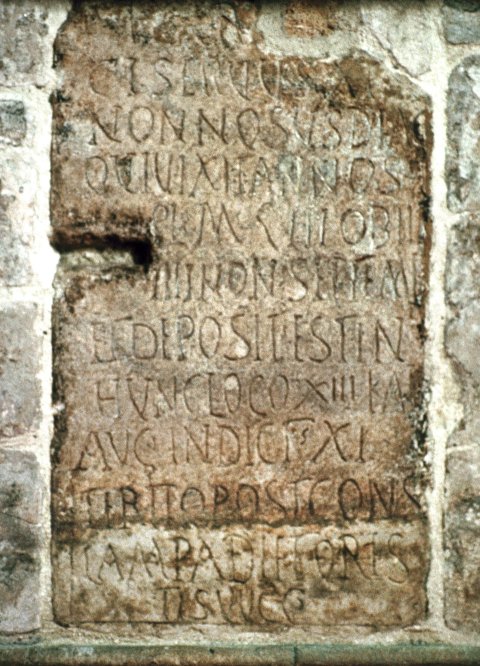 CISERVUS
NONNOSUS DI
QVIVIXITANNOS
PL M OBII
IIII NON SEPTEM
ET DEPOSIT EST IN
HUNC LOCO XIII KA
AVG INDICT XI
ITER PTO POST CONS
LAMPADI ET ORIS
TIS VVCC